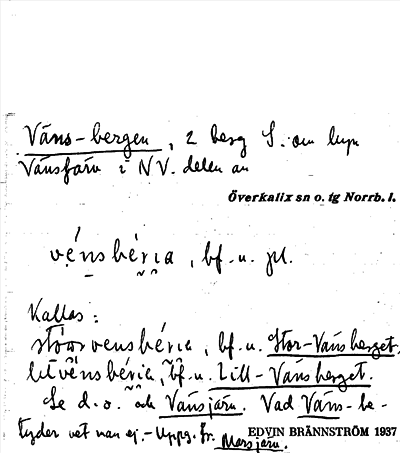 Väns-bergen, 2 berg S. om
Vänsjärv i NV. delen av
Överkalix sn o. tg Norrb. l.
vẹ́nsbéria, bf. u. pl.
Kallas:
stóorvensbéria, bf. u. Stor-Vänsberget.
litvẹ́nsbéria, bf. u. Lill-Vänsberget.
Se d. o. och Vänsjärv. Vad Väns- be-
tyder vet man ej. - Uppg. fr.
EDVIN BRÄNNSTRÖM 1937